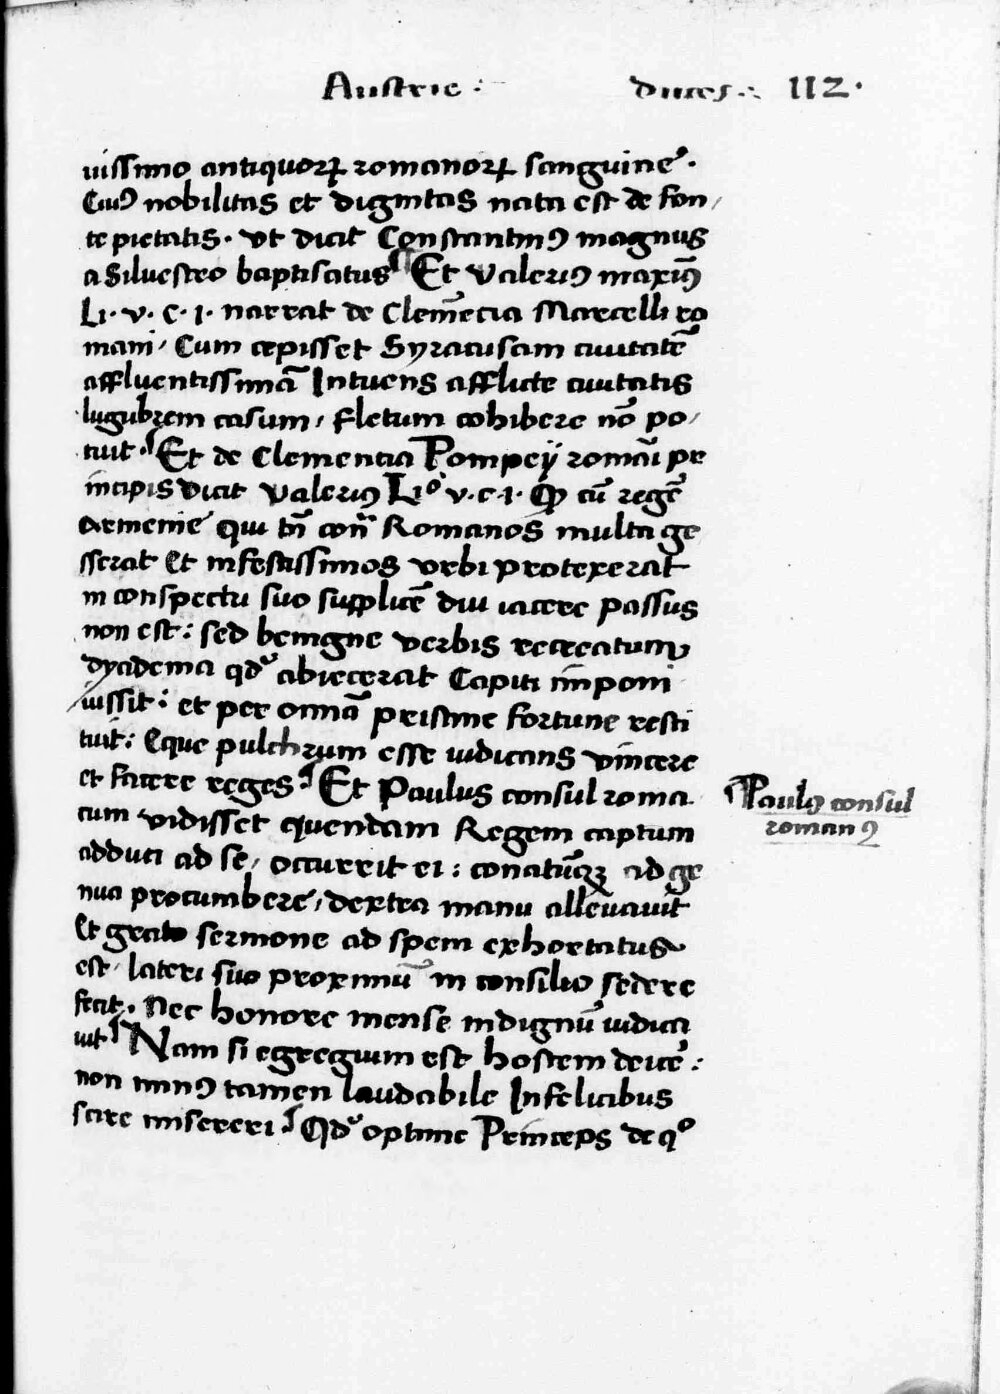 Austrie : duces :. 112.
uissimo antiquoꝝ romanoꝝ sanguine.
Cuiꝰ nobilitas et dignitas nata est de fon/
te pietatis. Ut dicit Constantinꝰ magnus
a Siluestro baptisatus ¶ Et Valeriꝰ maxim̄ꝰ
Li. v. c. i. narrat de Clemēcia Marcelli ro
mani. Cum cepisset Syracusam ciuitatē
affluentissimā Intuens afflicte ciuitatis
lugubrem casum, fletum cohibere nō po/
tuit. ¶ Et de Clementia Pompeij romāi pr
incipis dicit Valeriꝰ Liº v. c. i. Ꝙ cū regē
Armenie qui tn̄ con̄ Romanos multa ge
sserat et infestissimos urbi protexerat
in conspectu suo supplicē diu iacere passus
non est : sed benigne verbis recreatum
dyadema qd' abiecerat Capiti imponi
iussit : et per omnā pristine fortune resti
tuit : Eque pulchrum esse iudicans vincere
et facere reges ¶ Et Paulus consul roma.
cum vidisset quendam Regem captum
adduci ad se, occurrit ei : conatūqꝫ ad ge
nua procumbere, dextra manu alleuauit
Et grato sermone ad spem exhortatus
est. lateri suo proximū in consilio sedere
fecit. Nec honore mense indignū iudica
uit ¶ Nam si egregium est hostem deicē :
non minꝰ tamen laudabile Infelicibus
scire misereri ¶ Qd' optime Princeps de qº
¶ Paulꝰ consul
romanꝰ